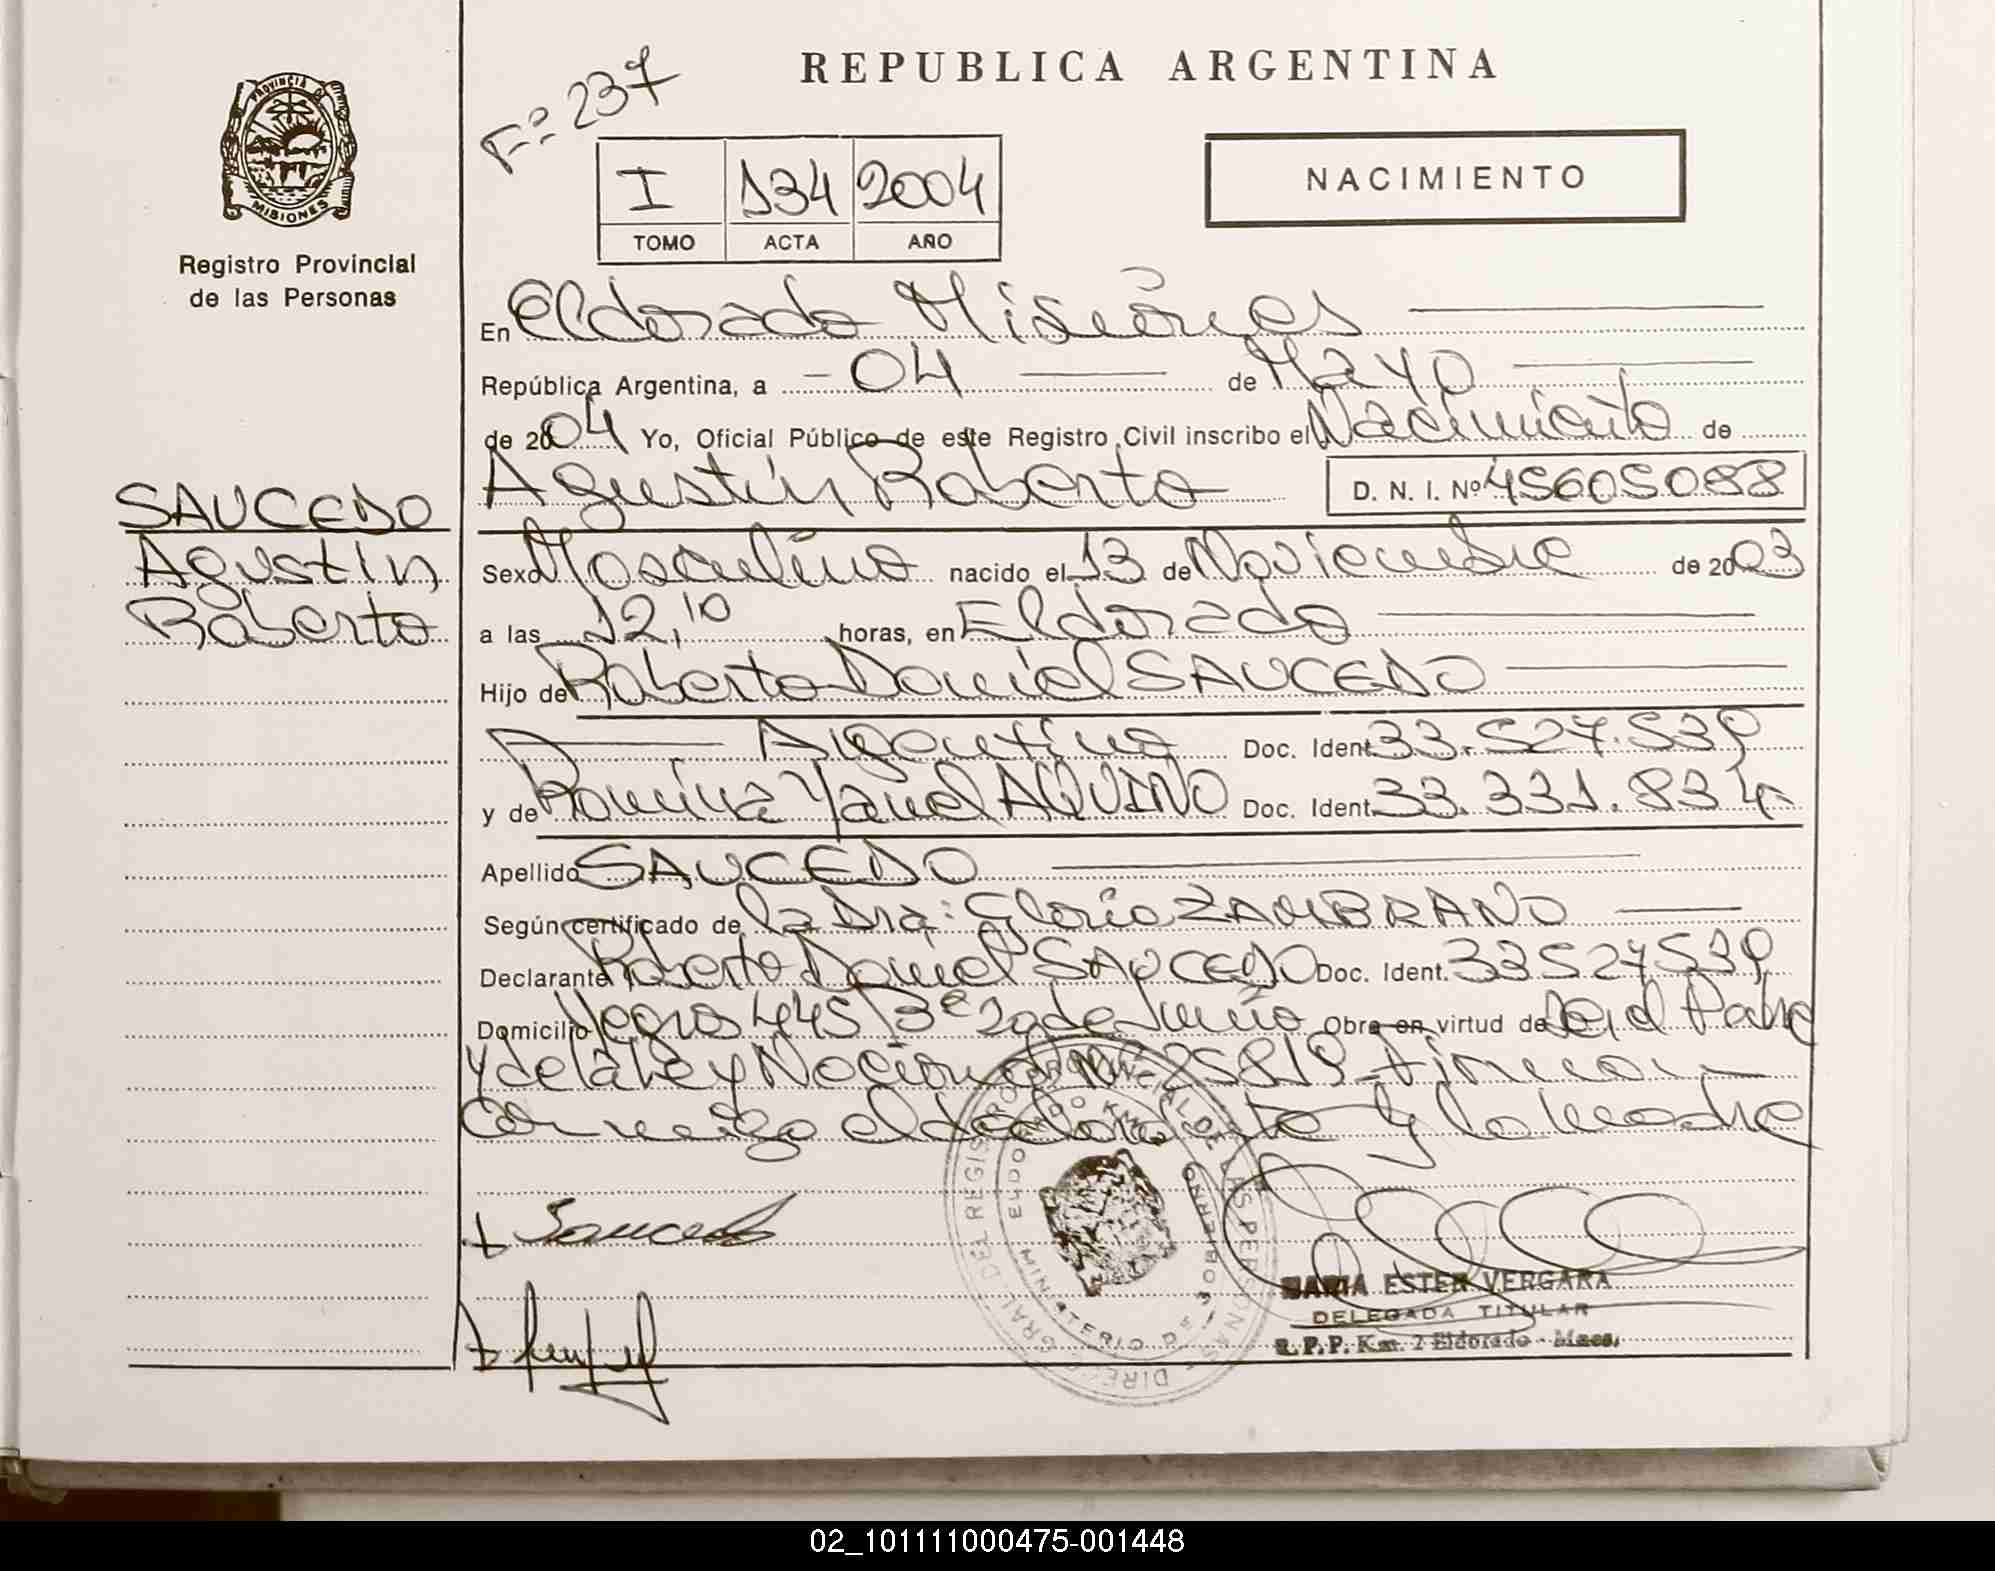 REPUBLICA ARGENTINA
Fº 237
PROVINCIA DE
MISIONES
Registro Provincial
de las Personas
I 134 2004
TOMO ACTA AÑO
NACIMIENTO
En Eldorado Misiones
República Argentina, a - 04 de Mayo
de 2004 Yo, Oficial Público de este Registro Civil inscribo el Nacimiento de
Agustín Roberto D. N. I. Nº 45605088
SAUCEDO
Agustín
Roberto
Sexo Masculino nacido el 13 de Noviembre de 2003
a las 12,10 horas, en Eldorado
Hijo de Roberto Daniel SAUCEDO
Argentino Doc. Ident. 33.527.539
y de Romina Yanel AQUINO Doc. Ident. 33.331.834
Apellido SAUCEDO
Según certificado de la Dra: Gloria ZAMBRANO
Declarante Roberto Daniel SAUCEDO Doc. Ident. 33527539
Domicilio Negros 445 Bº 20 de Junio Obra en virtud de Ser el Padre
y de la Ley Nacional Nº 25819 - Firman
Conmigo el declarante y la madre
Saucedo
DIREC. GRAL. DEL REGISTRO PROVINCIAL DE LAS PERSONAS
MINISTERIO DE GOBIERNO
MARIA ESTER VERGARA
DELEGADA TITULAR
R.P.P. Km. 2 Eldorado - Mnes.
02_101111000475-001448